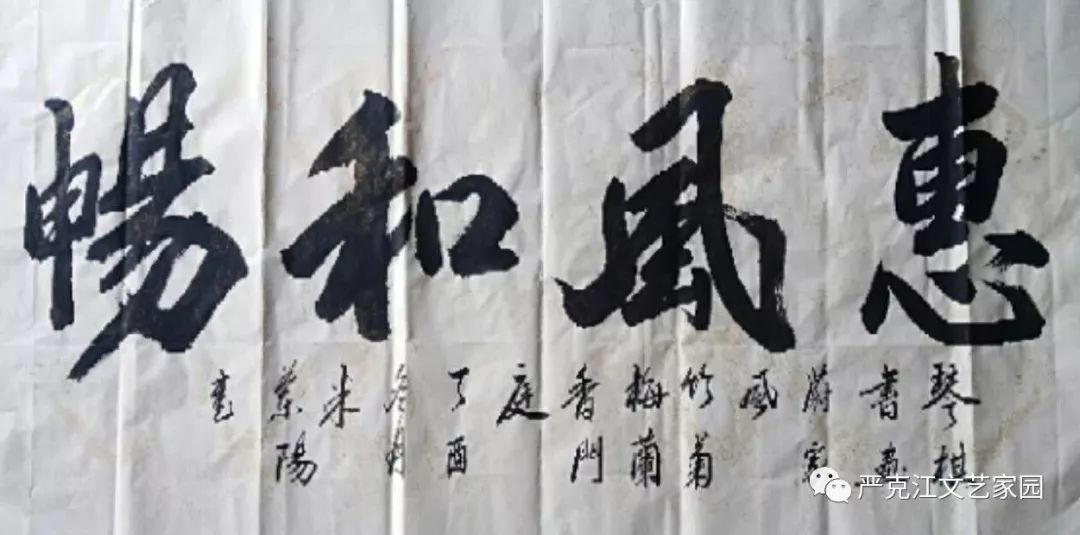 惠風和暢
琴棋
書畫
蔚家
風
竹菊
梅蘭
香門
庭
丁酉
冬月
米
景陽
書
严克江文艺家园